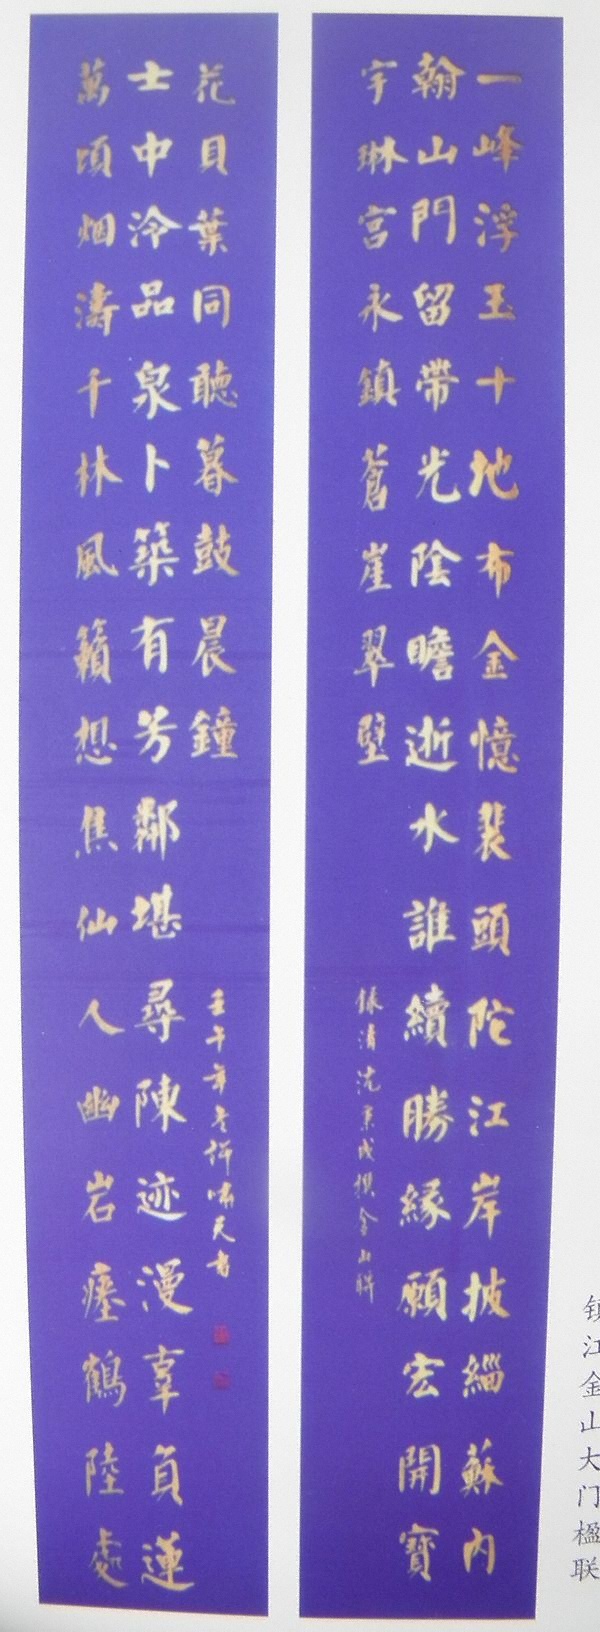 一峰浮玉十地布金憶裴頭陀江岸披緇蘇内
翰山門留帶光陰瞻逝水誰續勝緣願宏開寶
宇琳宮永鎮蒼崖翠壁
錄清沈秉成撰金山聯
萬頃烟濤千林風籟想焦仙人幽岩瘞鶴陸處
士中泠品泉卜築有芳鄰堪尋陳迹漫辜負蓮
花貝葉同聽暮鼓晨鐘
壬午年冬許嘯天書
镇江金山大门楹联